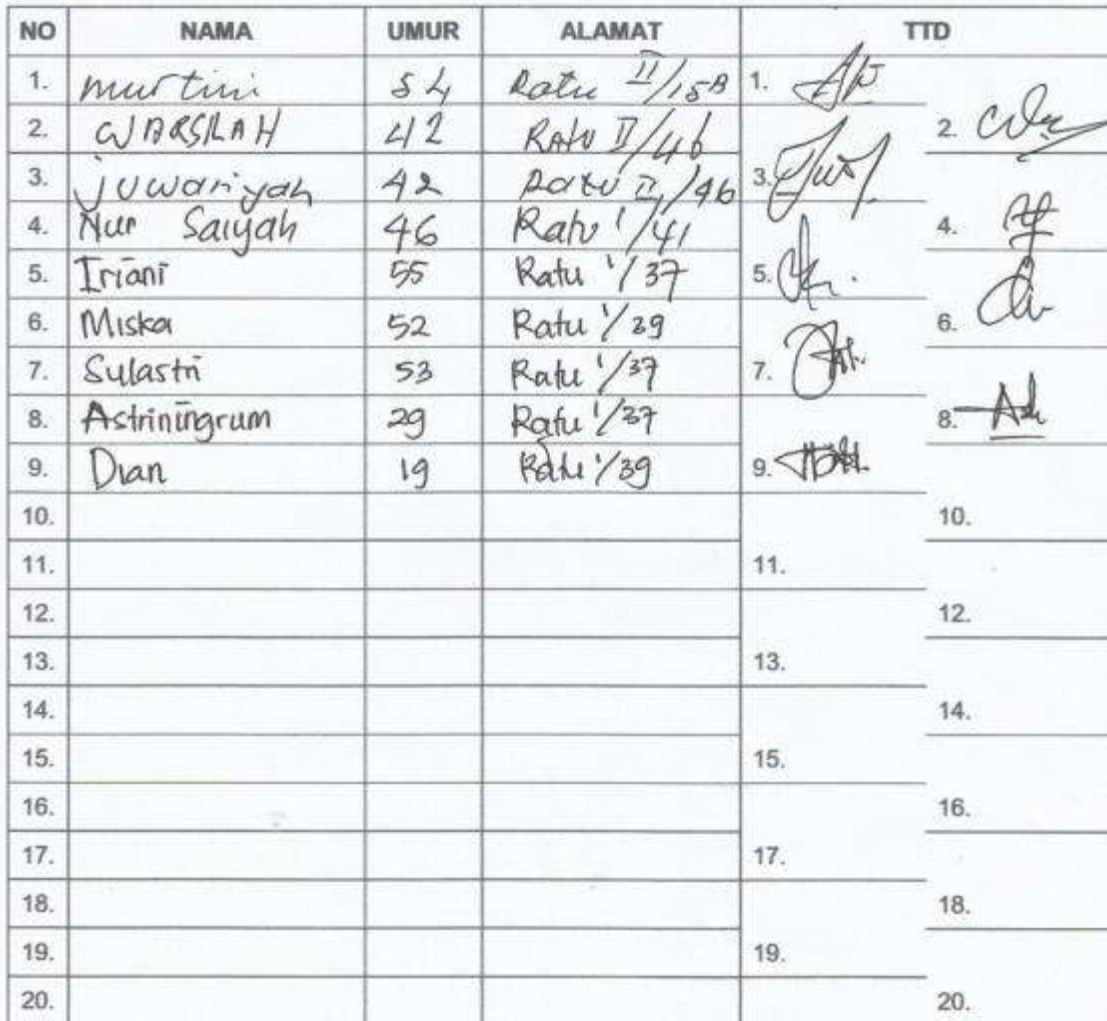 NO NAMA UMUR ALAMAT TTD
1. Murtini 54 Ratu II/15B 1.
2. WARSILAH 42 RATU II/46 2.
3. Juwariyah 42 Ratu II/46 3.
4. Nur Saiyah 46 Ratu 1/41 4.
5. Iriani 55 Ratu 1/37 5.
6. Miska 52 Ratu 1/39 6.
7. Sulastri 53 Ratu 1/37 7.
8. Astriningrum 29 Ratu 1/37 8.
9. Dian 19 Ratu 1/39 9.
10. 10.
11. 11.
12. 12.
13. 13.
14. 14.
15. 15.
16. 16.
17. 17.
18. 18.
19. 19.
20. 20.